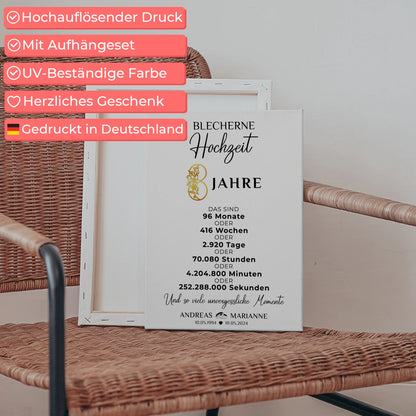 Hochauflösender Druck
Mit Aufhängeset
UV-Beständige Farbe
Herzliches Geschenk
Gedruckt in Deutschland
BLECHERNE
Hochzeit
8 JAHRE
DAS SIND
96 Monate
ODER
416 Wochen
ODER
2.920 Tage
ODER
70.080 Stunden
ODER
4.204.800 Minuten
ODER
252.288.000 Sekunden
Und so viele unvergessliche Momente
ANDREAS MARIANNE
10.05.1994 ♥ 10.05.2024